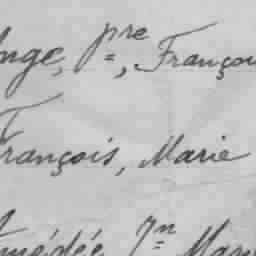 Ange, pre, François
François, Marie
Amédée, Jn Marie